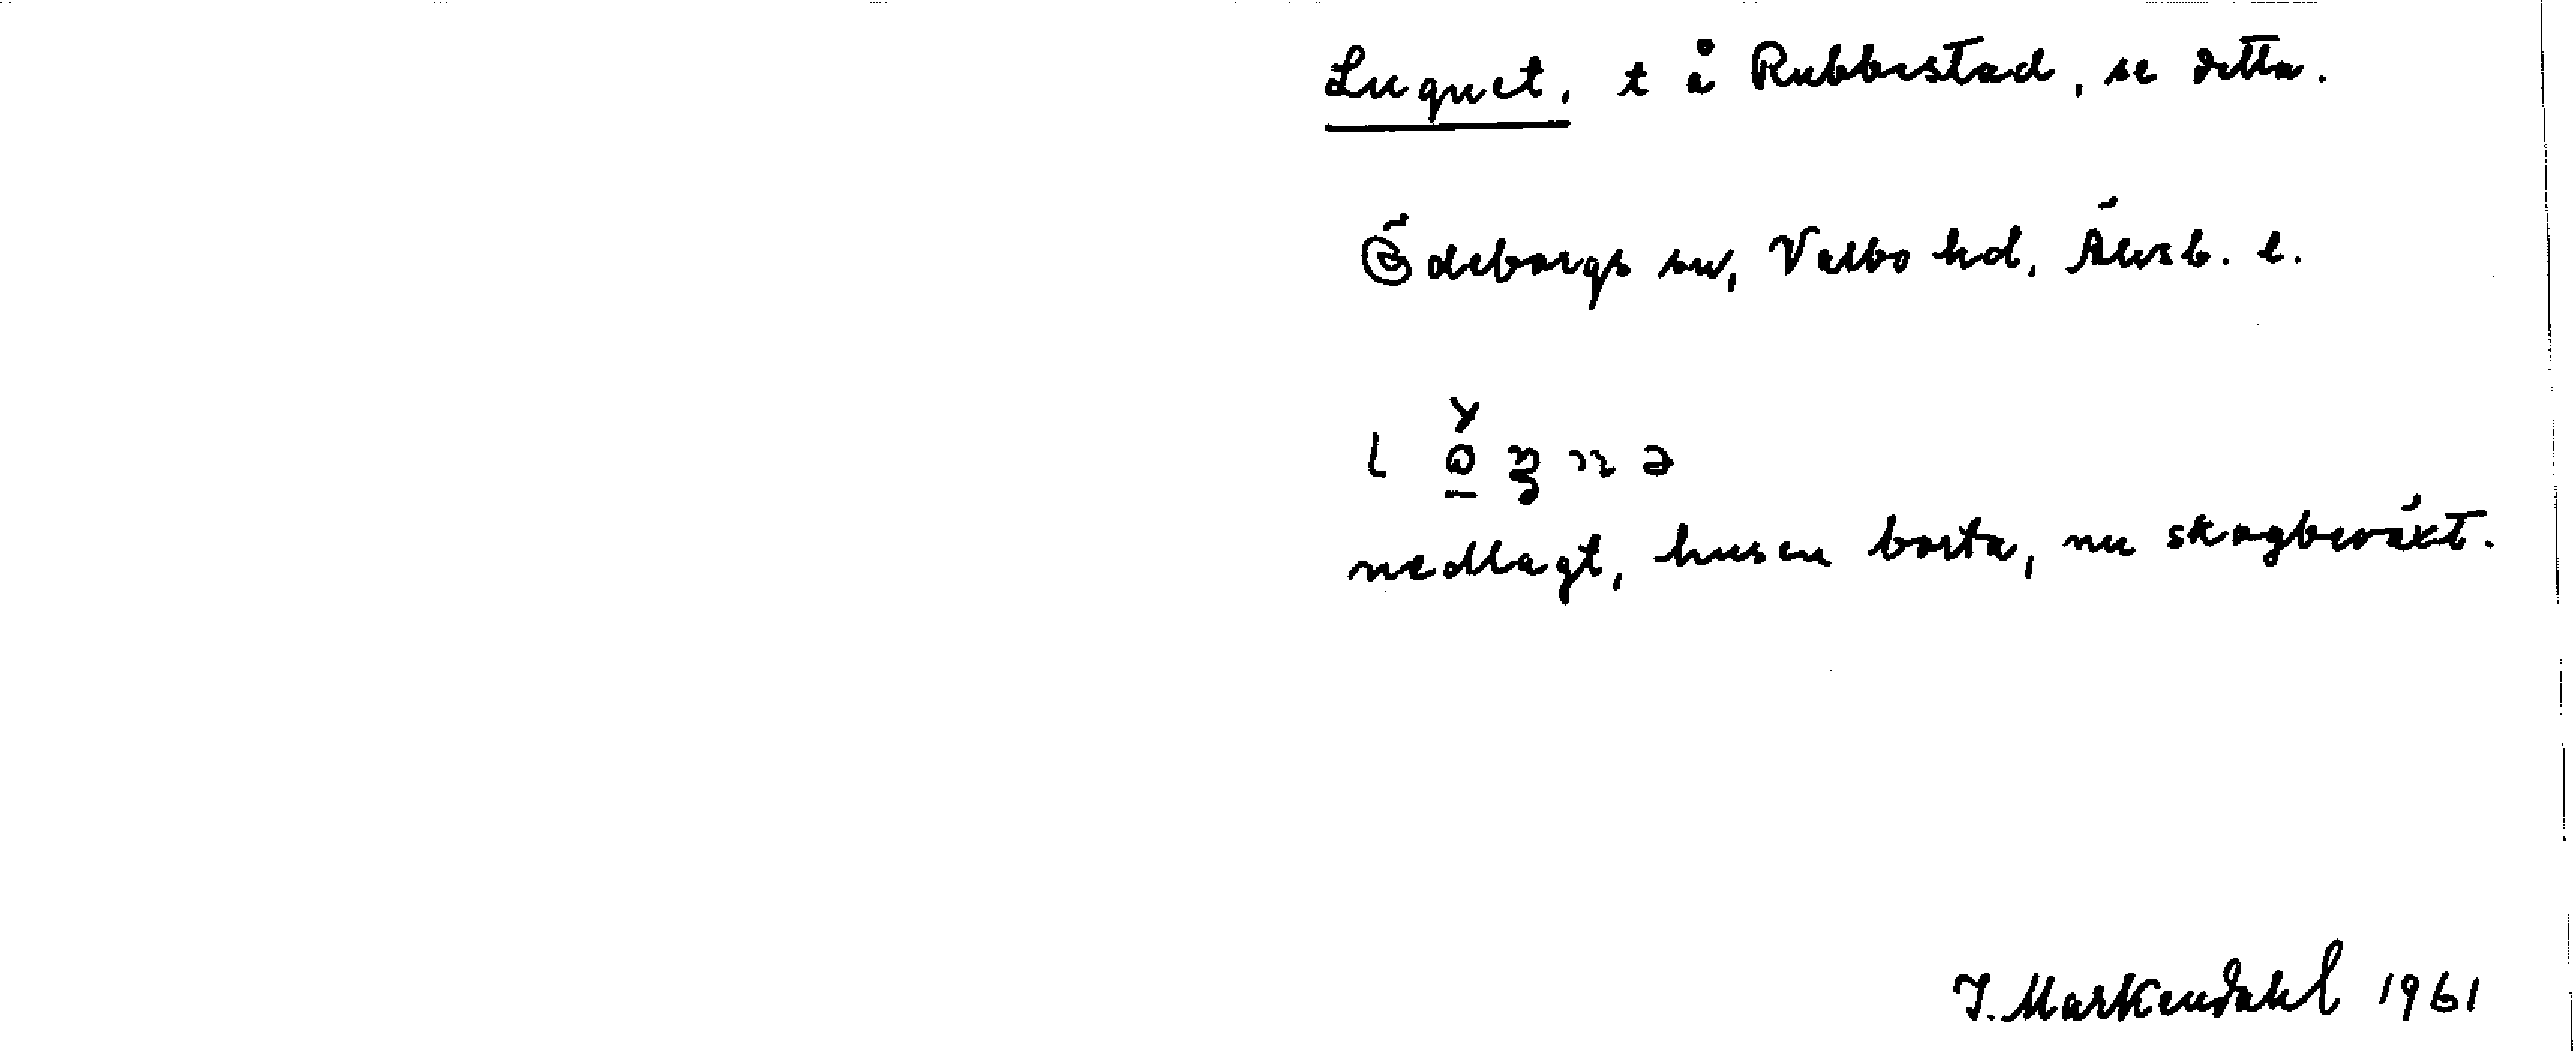 Lugnet, t å Rubbestad, se detta.
Ödeborgs sn, Valbo hd, Älvsb. l.
nedlagt, husen borta, nu skogbeväxt.
I. Markendahl 1961